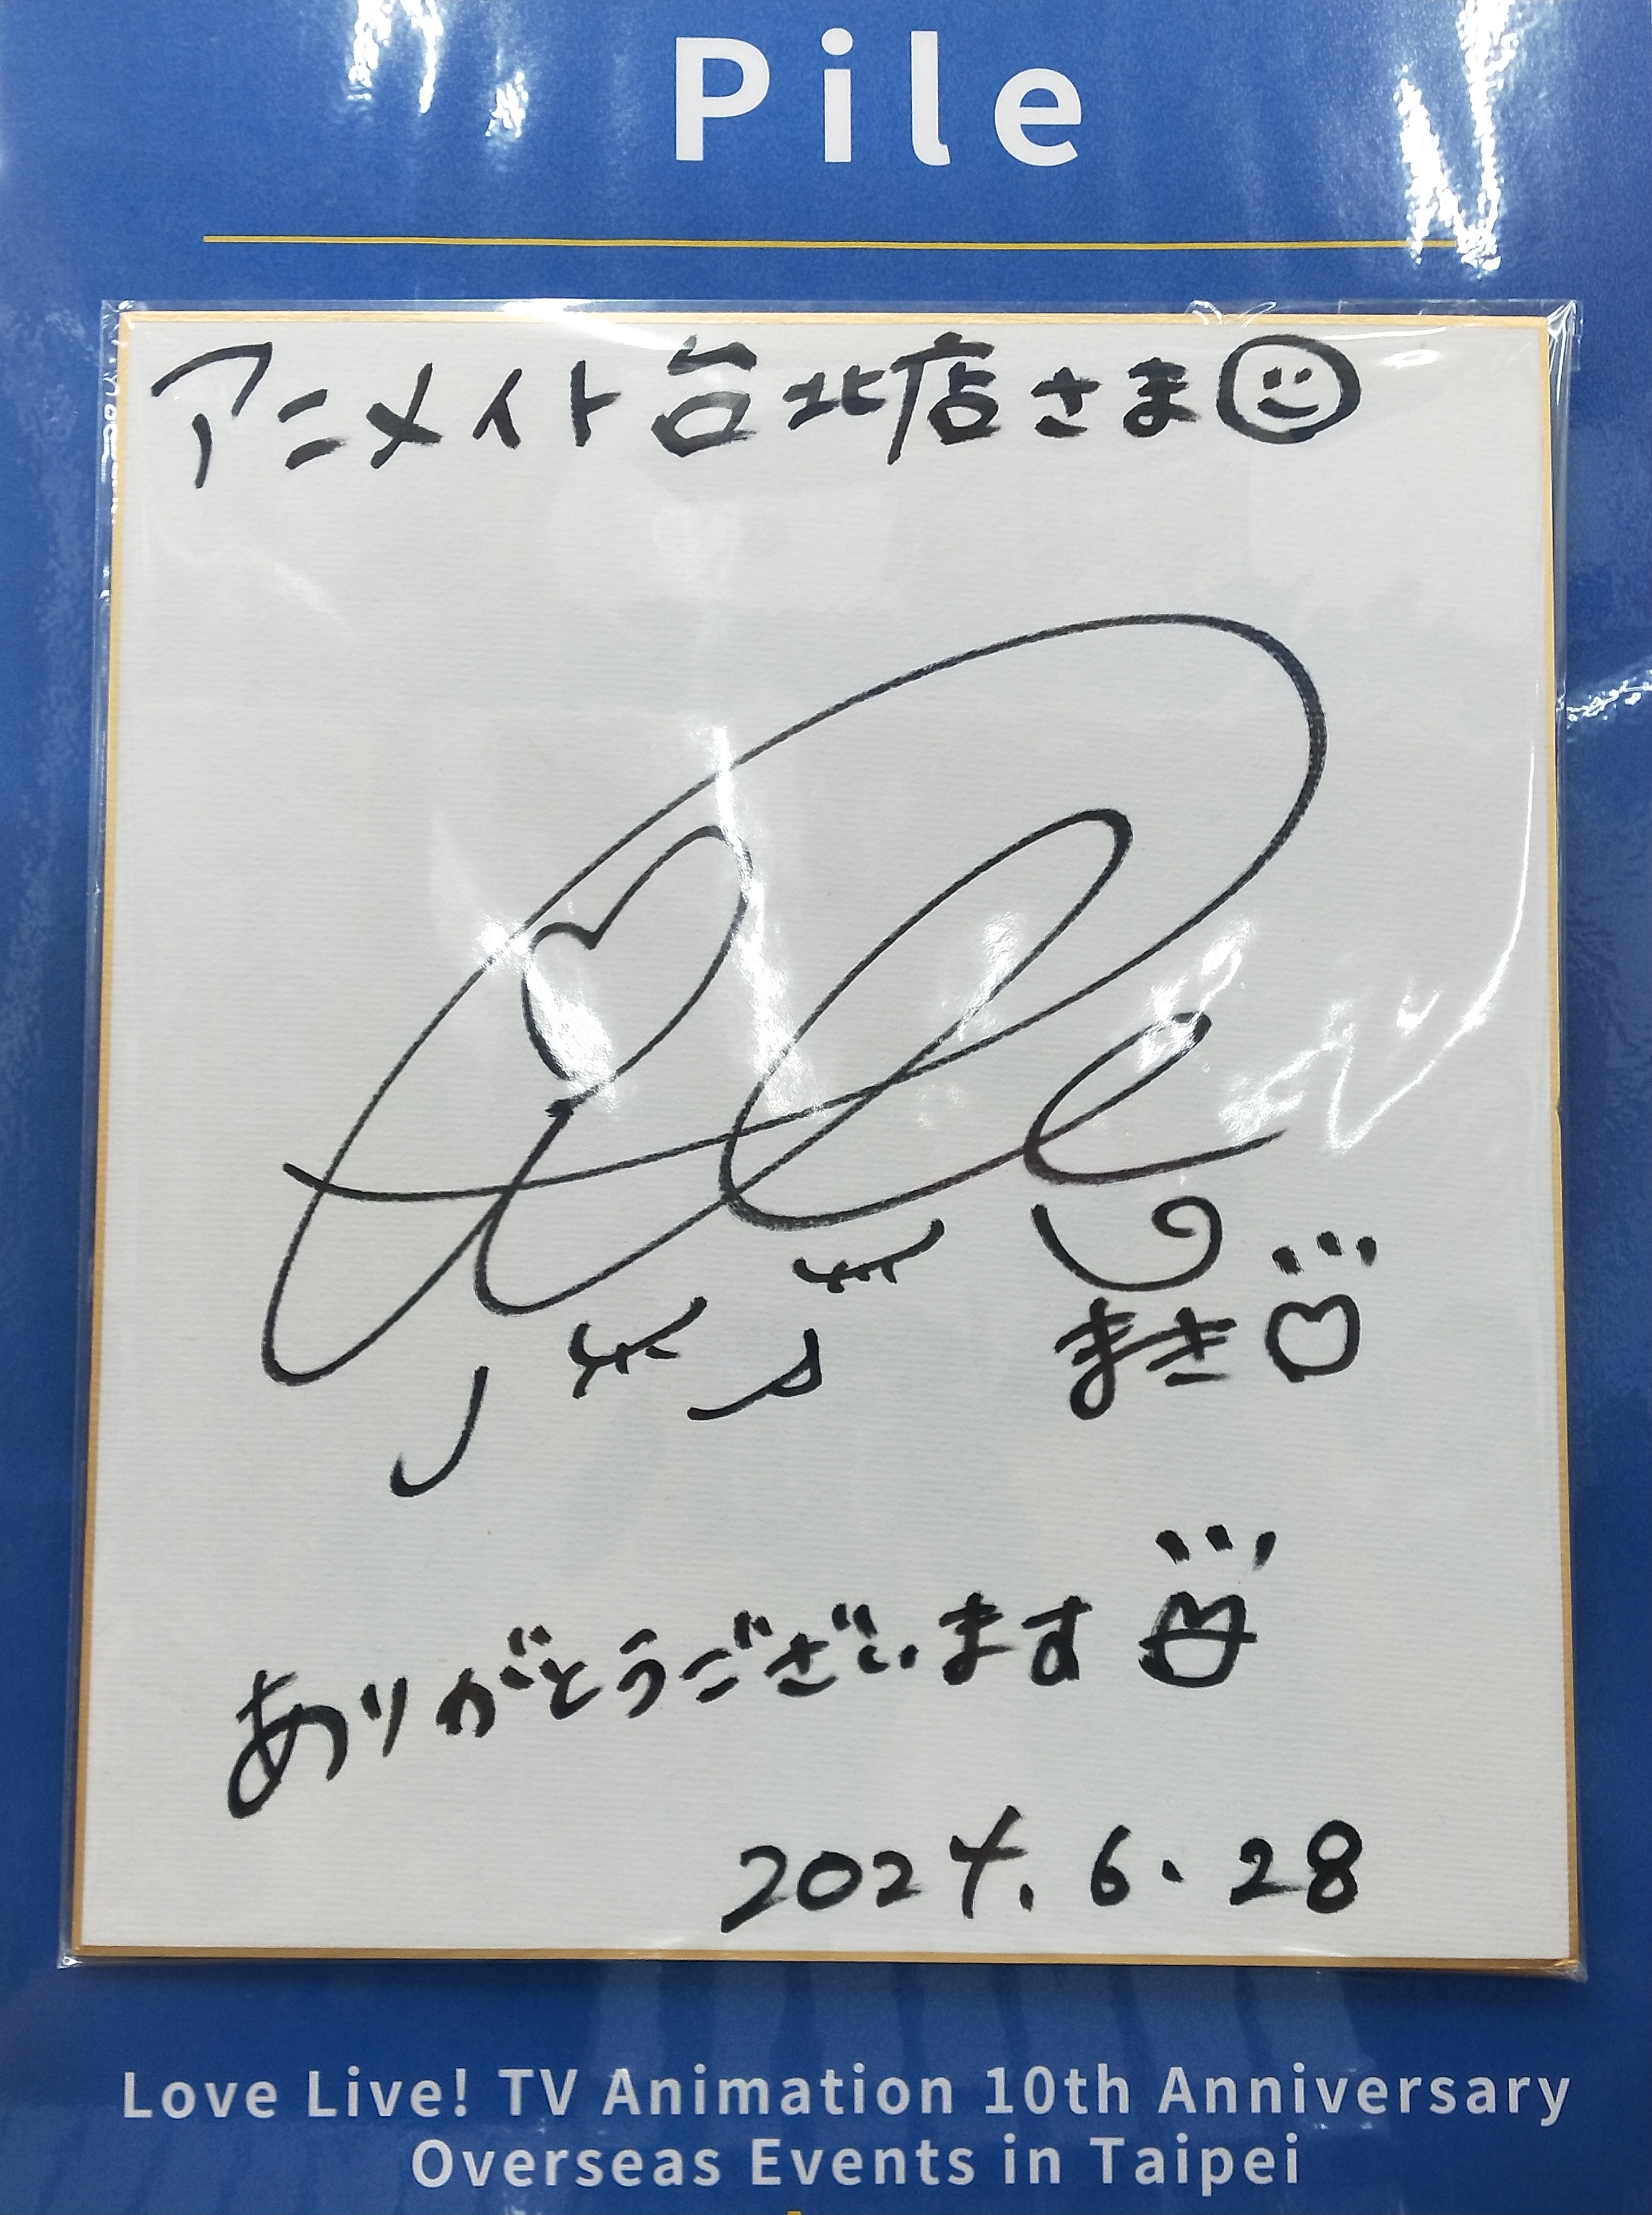 Pile
アニメイト台北店さま
Pile
まき
ありがとうございます
2024.6.28
Love Live! TV Animation 10th Anniversary
Overseas Events in Taipei